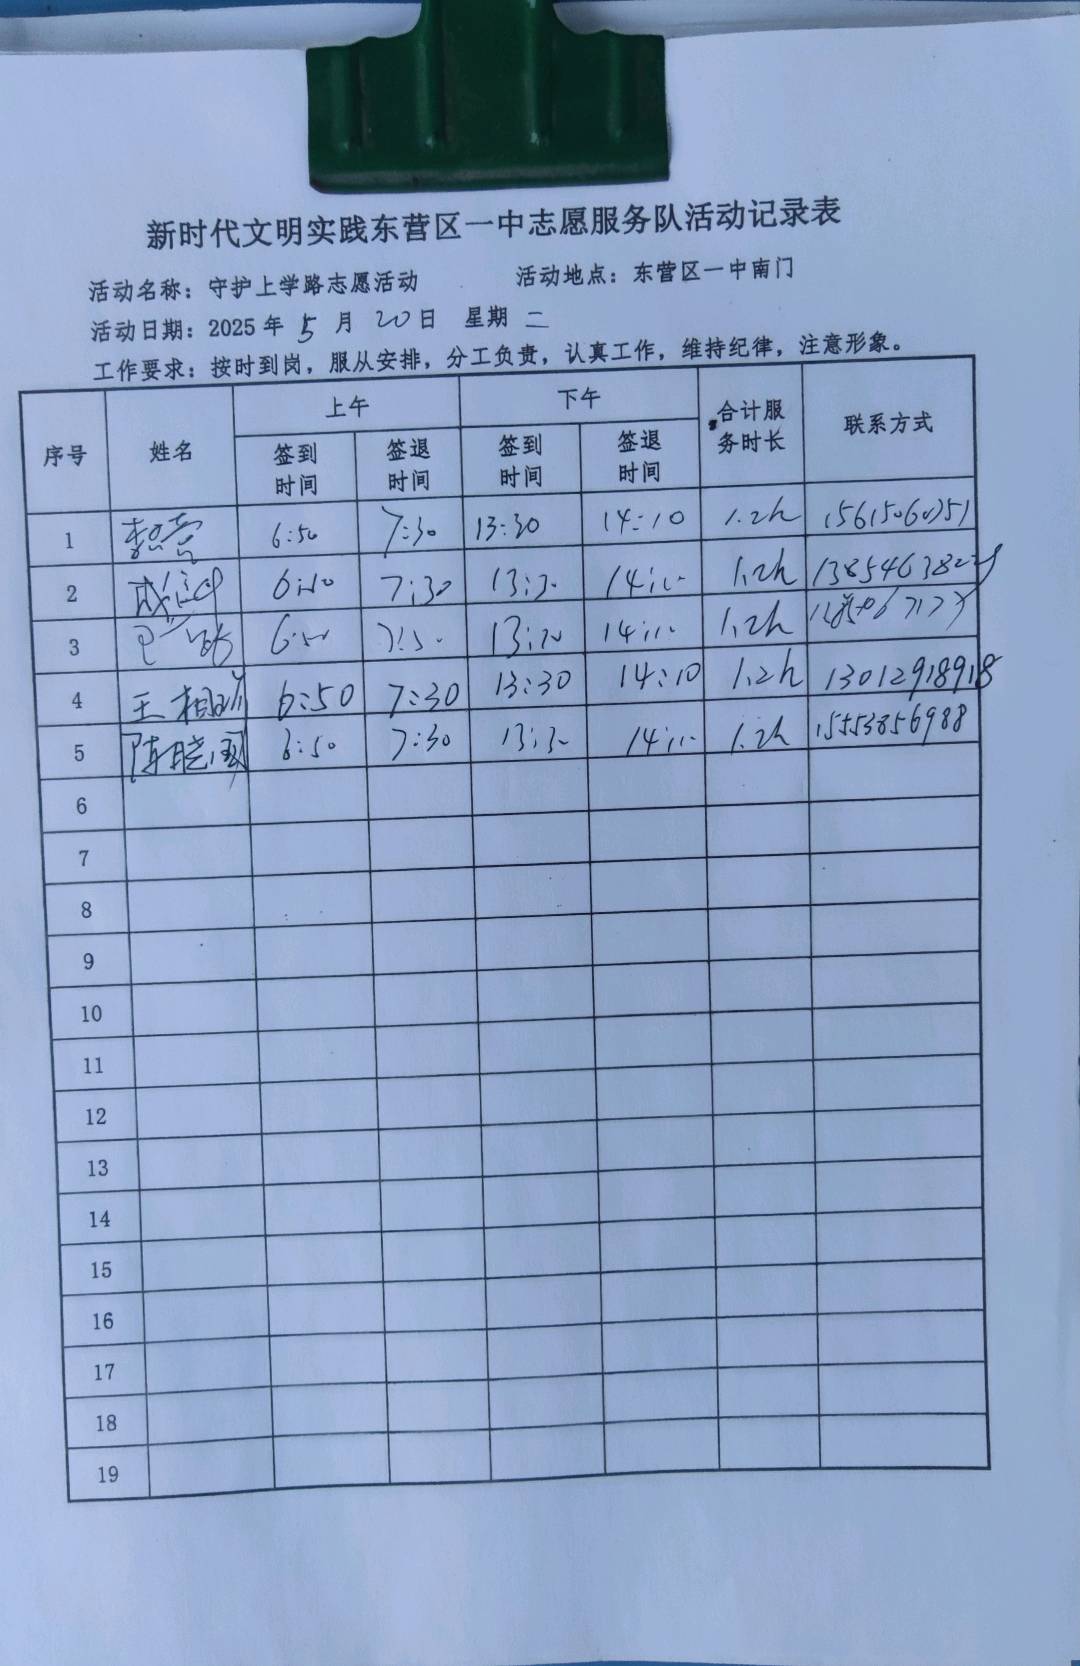 新时代文明实践东营区一中志愿服务队活动记录表
活动名称：守护上学路志愿活动 活动地点：东营区一中南门
活动日期：2025年5月20日 星期二
工作要求：按时到岗，服从安排，分工负责，认真工作，维持纪律，注意形象。
序号 姓名 上午 下午 合计服务时长 联系方式
签到时间 签退时间 签到时间 签退时间
1 6:50 7:30 13:30 14:10 1.2h
2 7:30 13:30 14:10 1.2h
3 6:50 7:30 13:30 14:10 1.2h
4 王 6:50 7:30 13:30 14:10 1.2h 13012918918
5 陈晓国 6:50 7:30 13:30 14:10 1.2h 15553856988
6
7
8
9
10
11
12
13
14
15
16
17
18
19